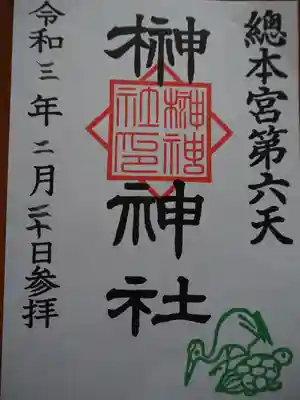 總本宮第六天
榊神社
榊神
社印
令和三年二月二十日参拝